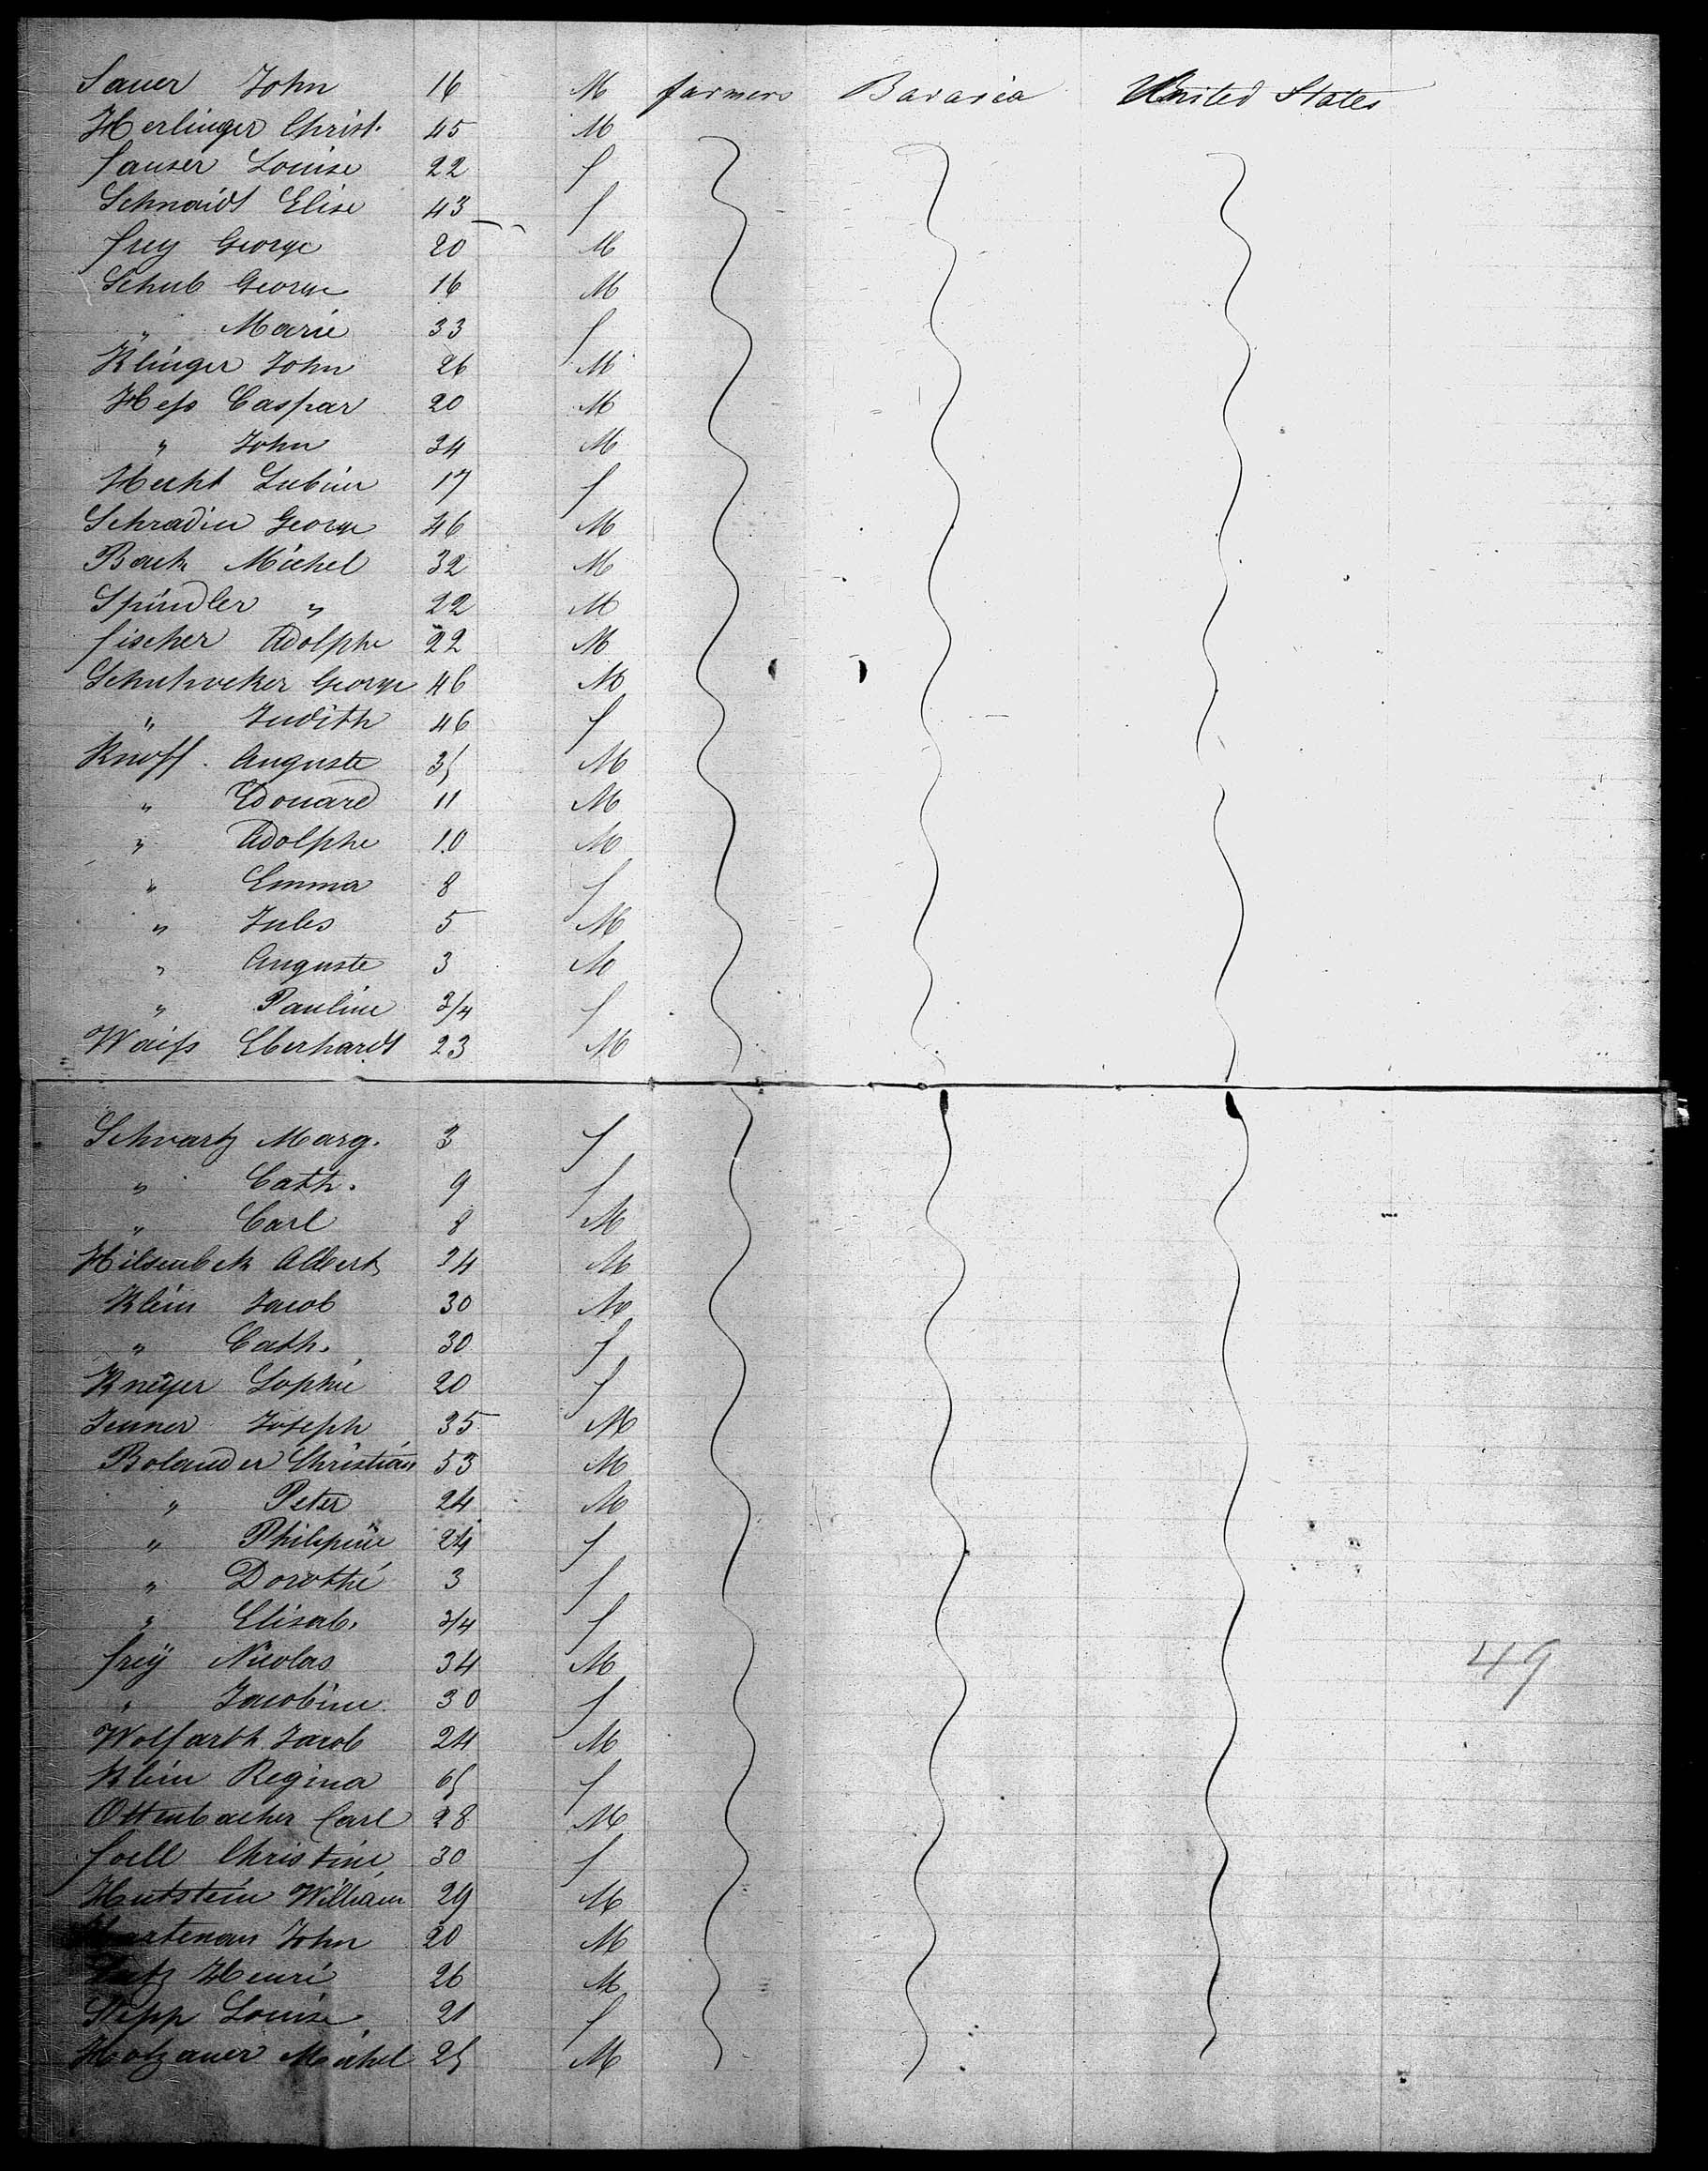 Sauer John 16 M farmers Bavaria United States
Herlinger Christ. 45 M
fauser Louise 22 f
Schnaidt Elise 43 f
frey George 20 M
Schub George 16 M
" Marie 33 f
Klinger John 26 M
Heſs Caspar 20 M
" John 34 M
Hecht Sabine 17 f
Schradin George 46 M
Bach Michel 32 M
Spindler " 22 M
fischer Adolphe 22 M
George 46 M
" Judith 46 f
Knoff. Auguste 35 M
" Edouard 11 M
" Adolphe 10 M
" Emma 8 f
" Jules 5 M
" Auguste 3 M
" Pauline 3/4 f
Waiſs Eberhardt 23 M
Schvartz Marg. 3 f
" Cath. 9 f
" Carl 8 M
Hilsenbek Albert 34 M
Klein Jacob 30 M
" Cath. 30 f
Kneÿer Sophie 20 f
Jenner Joseph 35 M
Bolander Christian 53 M
" Peter 24 M
" Philipine 24 f
" Dorothé 3 f
" Elisab. 3/4 f
freÿ Nicolas 34 M
" Jacobine 30 f
Wolfarth Jacob 24 M
Klein Regina 65 f
49
Ottenbacher Carl 28 M
foell Christine 30 f
Hutstein William 29 M
John 20 M
Henri 26 M
Stepp Louise 21 f
Hotzauer Michel 25 M